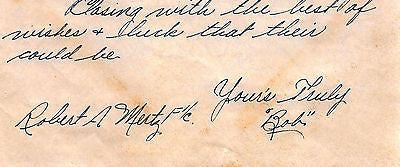 Closing with the best of
wishes & luck that their
could be
Yours Truly
Robert A Mertz F 1/c. "Bob"